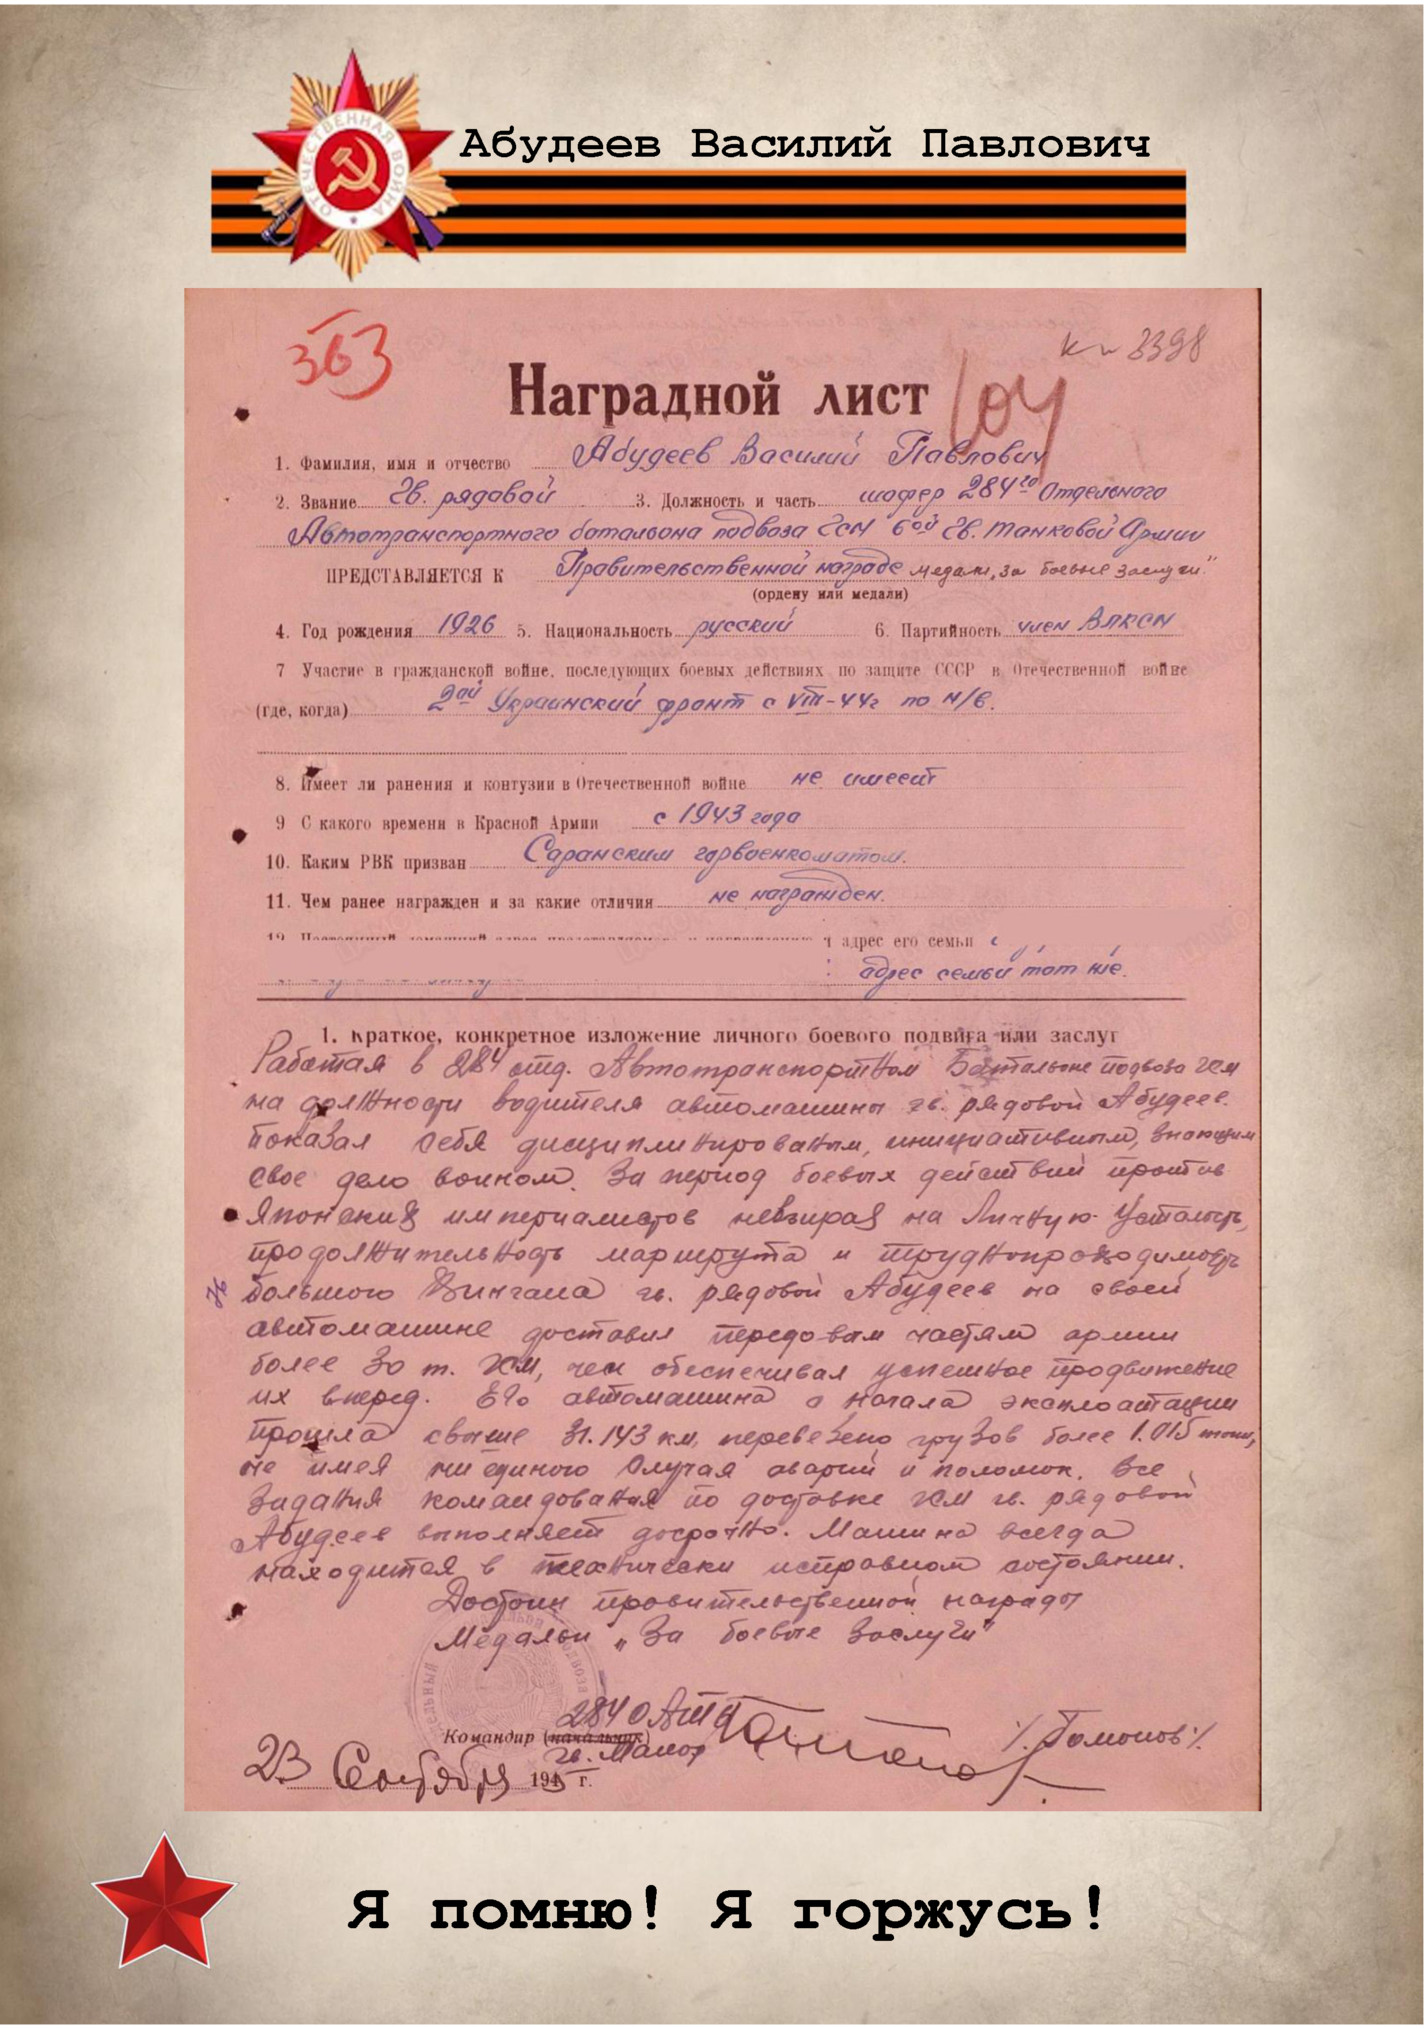 Абудеев Василий Павлович
ОТЕЧЕСТВЕННАЯ ВОЙНА
363
3398
Наградной лист
104
1. Фамилия, имя и отчество Абудеев Василий Павлович
2. Звание Гв. рядовой 3. Должность и часть шофер 284го Отдельного
Автотранспортного батальона подвоза ГСМ 6ой Гв. Танковой Армии
ПРЕДСТАВЛЯЕТСЯ К Правительственной награде медали „За боевые заслуги"
(ордену или медали)
4. Год рождения 1926 5. Национальность русский 6. Партийность член ВЛКСМ
7 Участие в гражданской войне, последующих боевых действиях по защите СССР в Отечественной войне
(где, когда) 2ой Украинский фронт с VIII-44г по н/в.
8. Имеет ли ранения и контузии в Отечественной войне не имеет
9 С какого времени в Красной Армии с 1943 года
10. Каким РВК призван Саранским горвоенкоматом.
11. Чем ранее награжден и за какие отличия не награжден.
адрес его семьи
адрес семьи тот же.
1. Краткое, конкретное изложение личного боевого подвига или заслуг
Работая в 284 отд. Автотранспортном Батальоне подвоза гсм
на должности водителя автомашины гв. рядовой Абудеев
показал себя дисциплинированым, инициативным, знающим
свое дело воином. За период боевых действий против
Японских империалистов невзирая на Личную Усталость,
продолжительность маршрута и труднопроходимость
большого Хингана гв. рядовой Абудеев на своей
автомашине доставил передовым частям армии
более 30 т. ГСМ, чем обеспечивал успешное продвижение
их вперед. Его автомашина с начала эксплоатации
прошла свыше 31.143 км, перевезено грузов более 1.015 тонн,
не имея ни единого Случая аварий и поломок. Все
Задания командования по доставке ГСМ гв. рядовой
Абудеев выполняет досрочно. Машина всегда
находится в технически исправном состоянии.
Достоин правительственной награды
Медали „За боевые заслуги"
284 ОАТБ
Командир (начальник)
гв. Майор
23 Сентября 1945 г.
Я помню! Я горжусь!